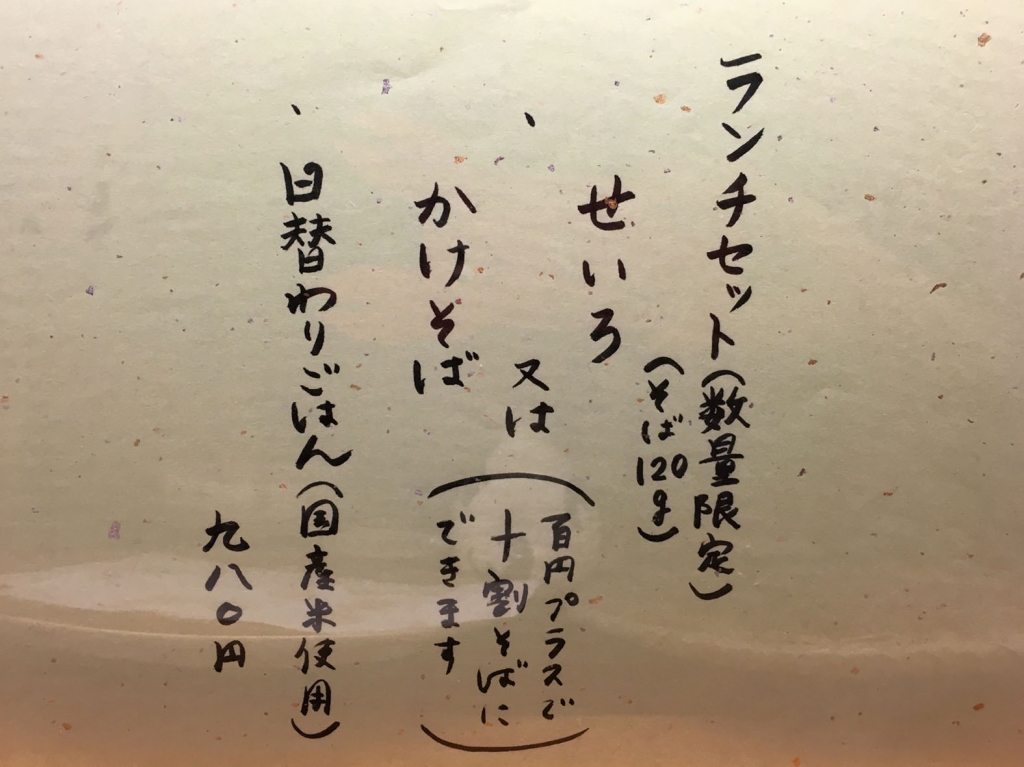 「ランチセット(数量限定)
(そば120g)
、せいろ
又は
かけそば
(百円プラスで
十割そばに
できます)
、日替わりごはん(国産米使用)
九八〇円